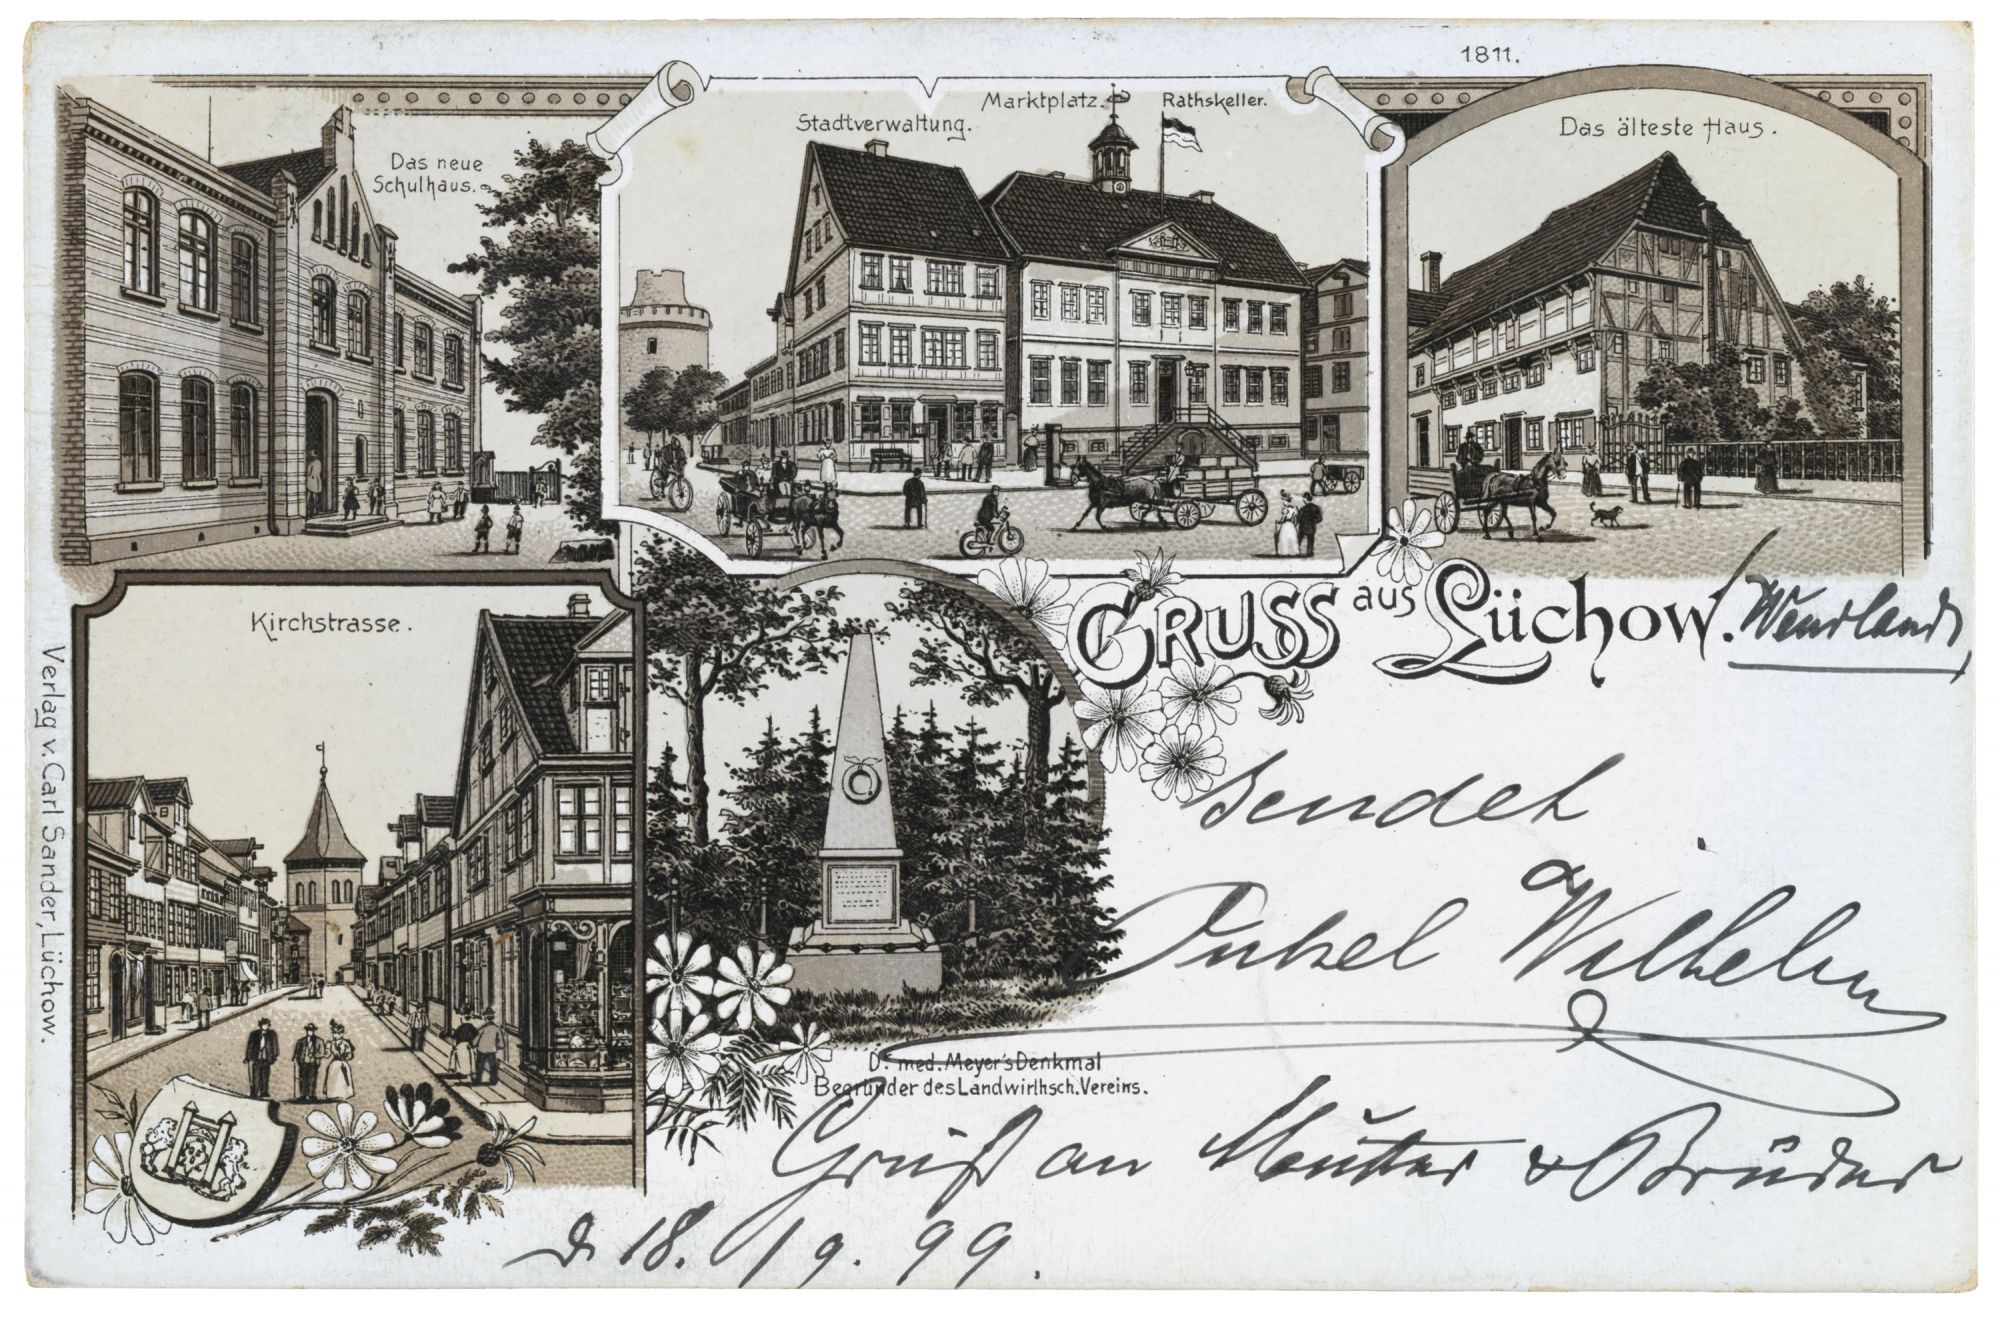 1811.
Das neue
Schulhaus.
Stadtverwaltung.
Marktplatz.
Rathskeller.
Das älteste Haus.
Kirchstrasse.
GRUSS aus Lüchow. (Wendland)
sendet
Onkel Wilhelm
D. med. Meyer's Denkmal
Begründer des Landwirthsch. Vereins.
Gruß an Mutter & Brüder
d. 18./9.99.
Verlag v. Carl Sander, Lüchow.